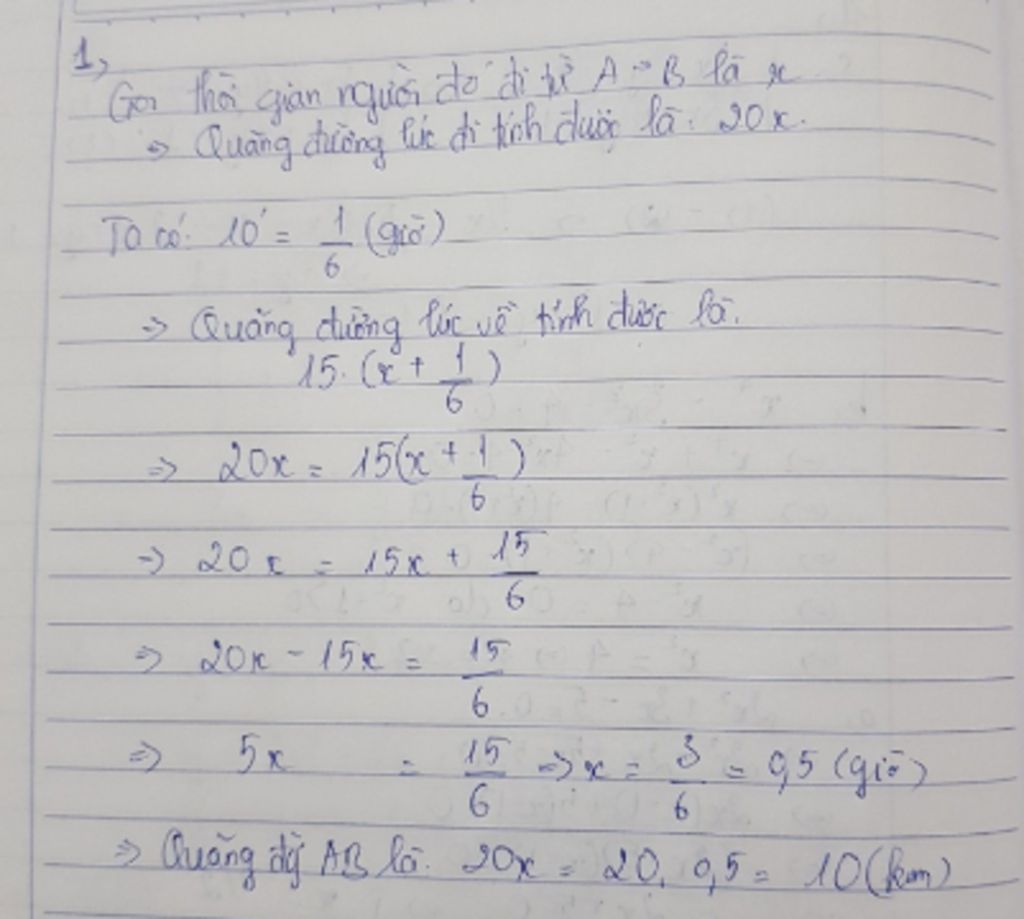 1,
Gọi thời gian người đó đi từ A → B là x
⇒ Quãng đường lúc đi tính được là: 20x.
Ta có: 10' = 1/6 (giờ)
⇒ Quãng đường lúc về tính được là:
15.(x + 1/6)
⇒ 20x = 15(x + 1/6)
⇒ 20x = 15x + 15/6
⇒ 20x - 15x = 15/6
⇒ 5x = 15/6 ⇒ x = 3/6 = 0,5 (giờ)
⇒ Quãng đg AB là: 20x = 20. 0,5 = 10 (km)